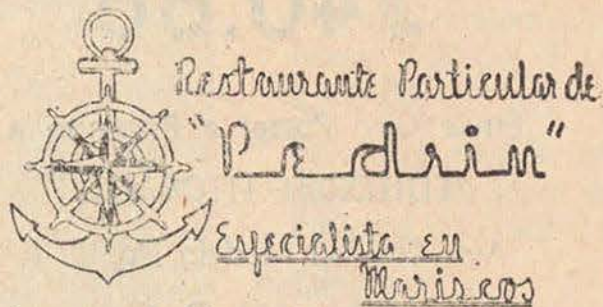 Restaurante Particular de
"Pedrin"
Especialista en
Mariscos